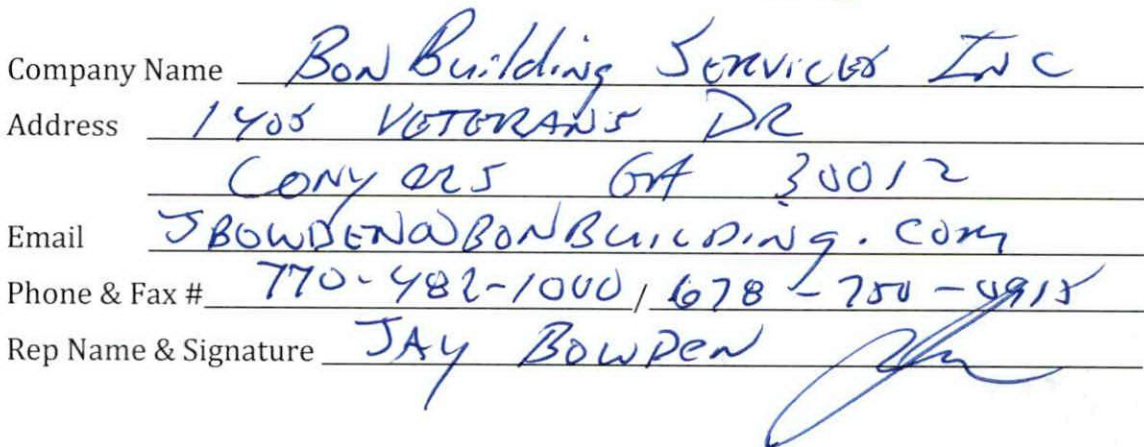 Company Name Bon Building Services Inc
Address 1405 VETERANS DR
CONYERS GA 30012
Email JBOWDEN@BONBUILDING.COM
Phone & Fax # 770-482-1000 / 678-750-0915
Rep Name & Signature JAY BOWDEN